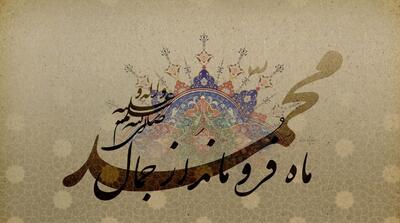 ماه فرو ماند از جمال
محمد
صلی الله علیه و اله و سلم